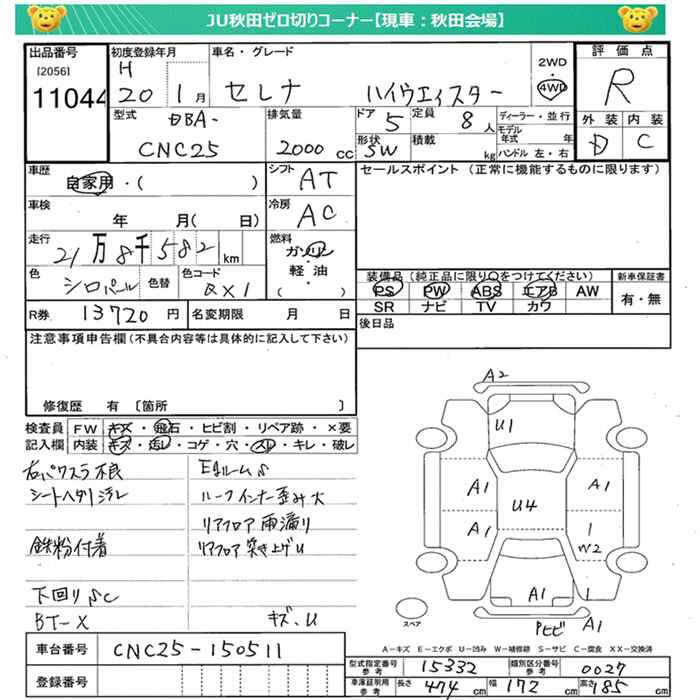 JU秋田ゼロ切りコーナー【現車：秋田会場】
出品番号 初度登録年月 車名・グレード 2WD 評価点
[2056] H 4WD R
11044 20 1月 セレナ ハイウエィスター
外装 内装
D C
型式 DBA- 排気量 ドア 5 定員 8人 ディーラー・並行
CNC25 2000cc 形状 SW 積載 kg モデル年式 年
ハンドル 左・右
車歴 自家用・( ) シフト AT セールスポイント (正常に機能するものに限ります)
車検 年 月( 日) 冷房 AC
走行 21万8千582km 燃料 ガソリン・軽油・( )
色 シロパール 色替 色コード QX1
装備品 (純正品に限り○をつけてください) 新車保証書
PS PW ABS エアB AW 有・無
SR ナビ TV カワ
R券 13720円 名変期限 月 日 後日品
注意事項申告欄(不具合内容等は具体的に記入して下さい)
修復歴 有 〔箇所 〕
検査員 FW キズ・飛石・ヒビ割・リペア跡・×要
記入欄 内装 キズ・汚レ・コゲ・穴・スレ・キレ・破レ
右パワスラ不良 EgルームS
シートヘタリ汚レ ルーフインナー歪み大
リアフロア雨漏り
鉄粉付着 リアフロア突き上げU
下回りSC
BT-X キズ、U
A2
U1
A1 A1
U4
A1 1
W2
A1 1
スペア Pヒビ A1
A－キズ E－エクボ U－凹み W－補修跡 S－サビ C－腐食 XX－交換済
車台番号 CNC25-150511
登録番号
型式指定番号 参考 15332 類別区分番号 参考 0027
車庫証明用 参考 長さ 474cm 幅 172cm 高さ 185cm